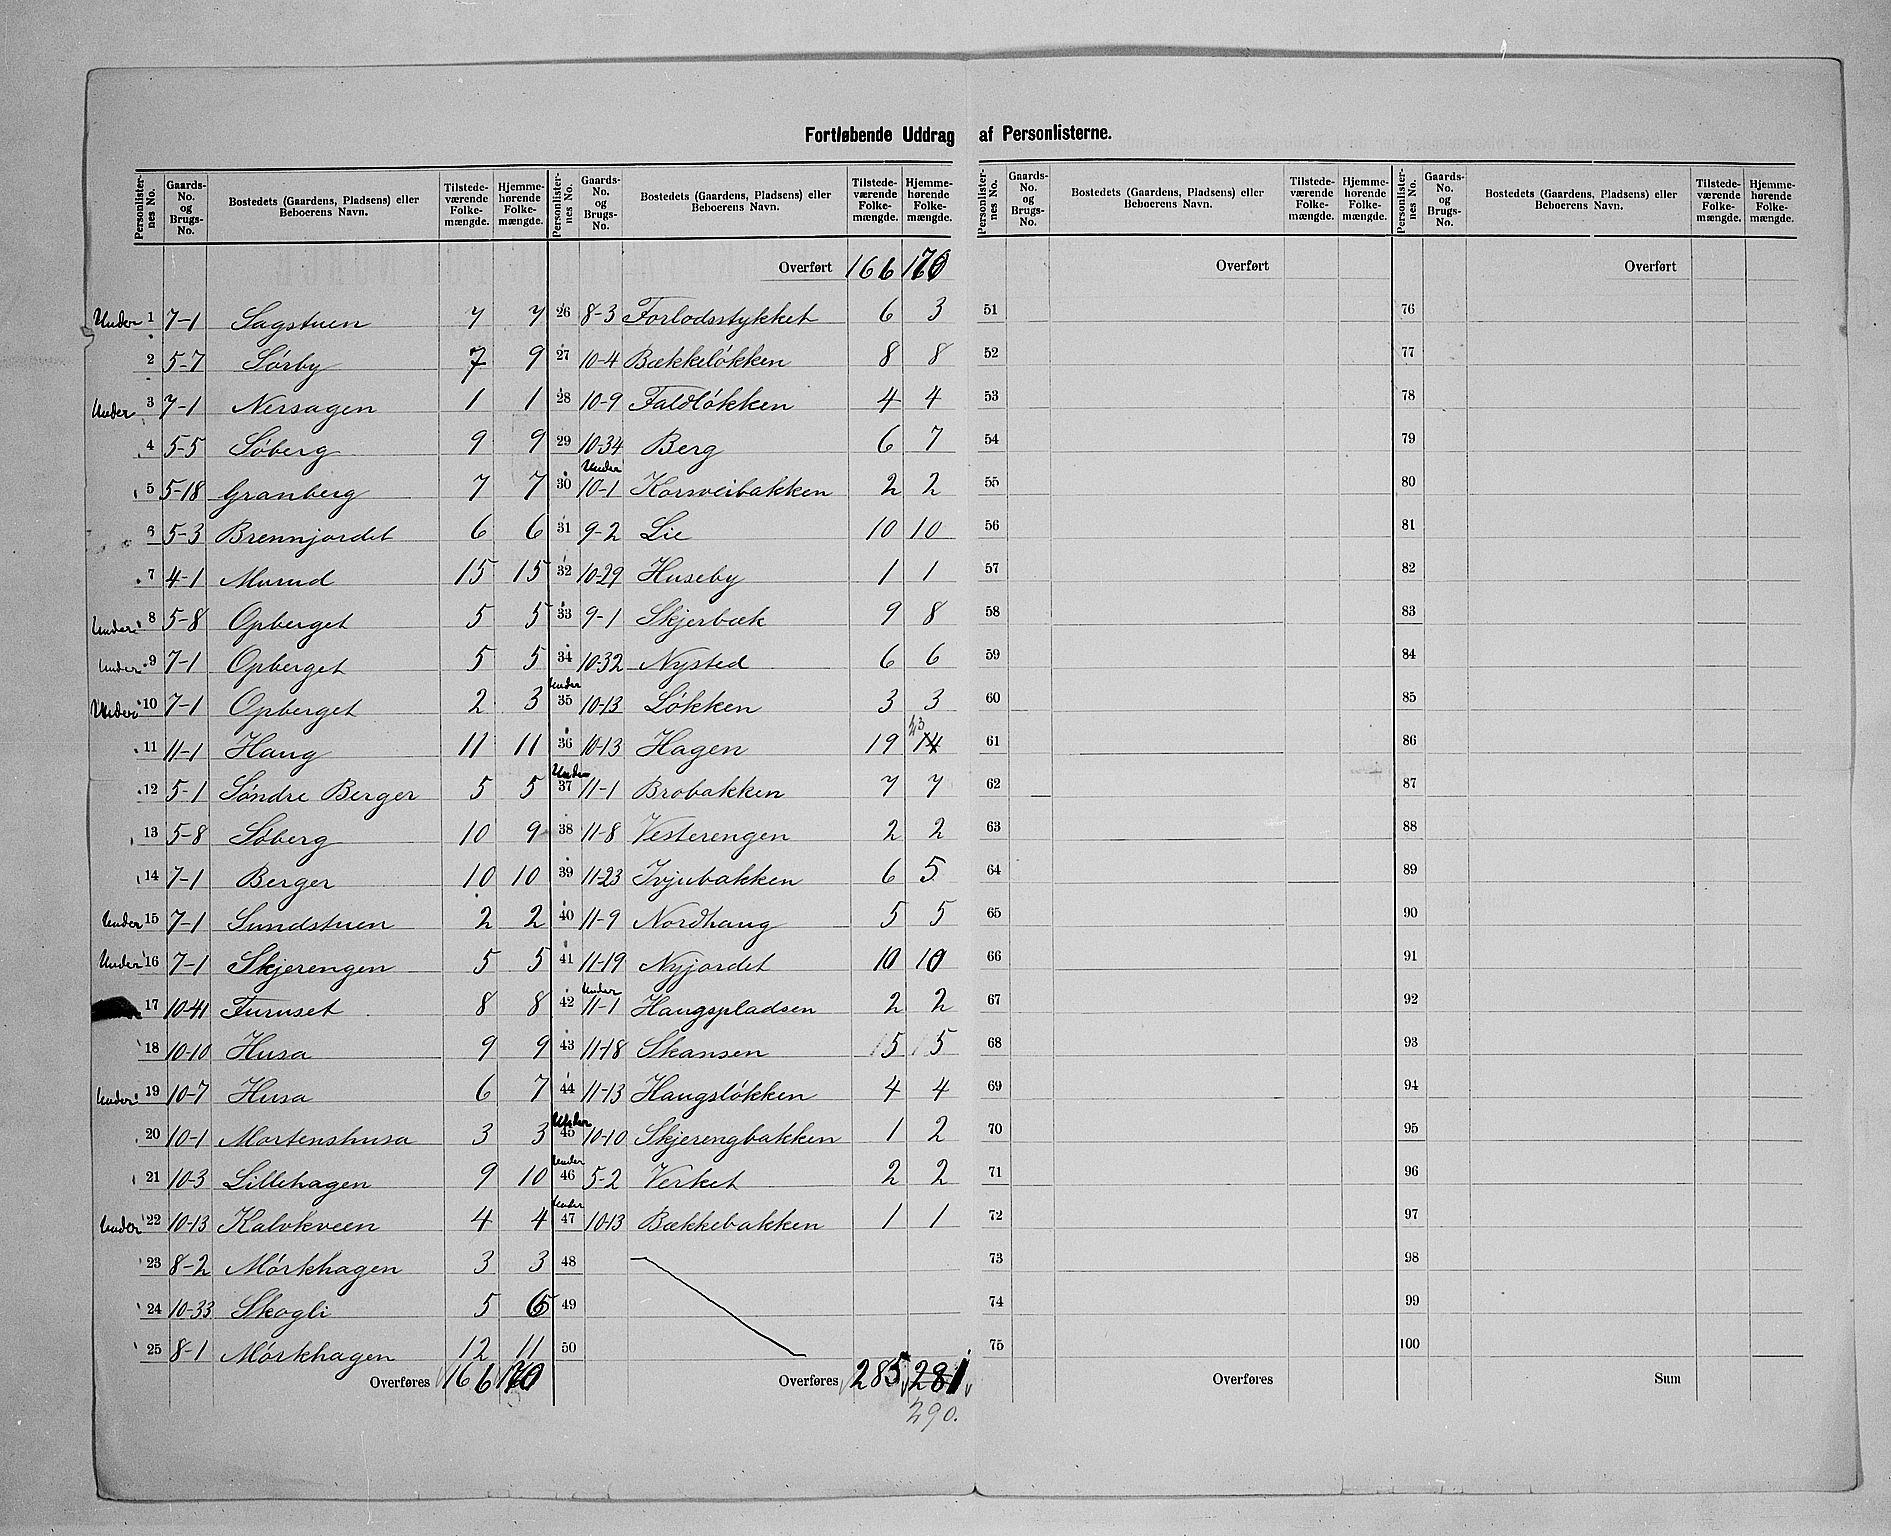 Fortløbende Uddrag af Personlisterne.
Personlisternes No. Gaards-No. og Brugs-No. Bostedets (Gaardens, Pladsens) eller Beboerens Navn. Tilstedeværende Folkemængde. Hjemmehørende Folkemængde.
Under 1 7-1 Sagstuen 7 7
2 5-7 Sørby 7 9
Under 3 7-1 Nersagen 1 1
4 5-5 Søberg 9 9
5 5-18 Granberg 7 7
6 5-3 Brennjordet 6 6
7 4-1 Morud 15 15
Under 8 5-8 Opberget 5 5
Under 9 7-1 Opberget 5 5
Under 10 7-1 Opberget 2 3
11 11-1 Haug 11 11
12 5-1 Søndre Berger 5 5
13 5-8 Søberg 10 9
14 7-1 Berger 10 10
Under 15 7-1 Sundstuen 2 2
Under 16 7-1 Skjerengen 5 5
17 10-41 Furuset 8 8
18 10-10 Husa 9 9
Under 19 10-7 Husa 6 7
20 10-1 Mortenshusa 3 3
21 10-3 Lillehagen 9 10
Under 22 10-13 Kalvkveen 4 4
23 8-2 Mørkhagen 3 3
24 10-33 Skogli 5
25 8-1 Mørkhagen 12 11
Overføres 166 170
Personlisternes No. Gaards-No. og Brugs-No. Bostedets (Gaardens, Pladsens) eller Beboerens Navn. Tilstedeværende Folkemængde. Hjemmehørende Folkemængde.
Overført 166 170
26 8-3 Forlodsstykket 6 3
27 10-4 Bækkeløkken 8 8
28 10-9 Faldløkken 4 4
29 10-34 Berg 6 7
30 Under 10-1 Korsveibakken 2 2
31 9-2 Lie 10 10
32 10-29 Huseby 1 1
33 9-1 Skjerbæk 9 8
34 10-32 Nysted 6 6
Under 35 10-13 Løkken 3 3
36 10-13 Hagen 19 14 23
Under 37 11-1 Brobakken 7 7
38 11-8 Vesterengen 2 2
39 11-23 Tvjubakken 6 5
40 11-9 Nordhaug 5 5
41 11-19 Nyjordet 10 10
42 Under 11-1 Haugspladsen 2 2
43 11-18 Skansen 5 5
44 11-13 Haugsløkken 4 4
Under 45 10-10 Skjerengbakken 1 2
Under 46 5-2 Verket 2 2
Under 47 10-13 Bækkebakken 1 1
48
49
50
Overføres 285 281
290.
Personlisternes No. Gaards-No. og Brugs-No. Bostedets (Gaardens, Pladsens) eller Beboerens Navn. Tilstedeværende Folkemængde. Hjemmehørende Folkemængde.
Overført
51
52
53
54
55
56
57
58
59
60
61
62
63
64
65
66
67
68
69
70
71
72
73
74
75
Overføres
Personlisternes No. Gaards-No. og Brugs-No. Bostedets (Gaardens, Pladsens) eller Beboerens Navn. Tilstedeværende Folkemængde. Hjemmehørende Folkemængde.
Overført
76
77
78
79
80
81
82
83
84
85
86
87
88
89
90
91
92
93
94
95
96
97
98
99
100
Sum